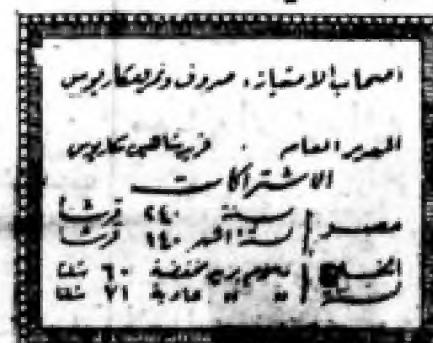 أصحاب الامتياز، صروف ونمر ومكاريوس
المدير العام . فريد شاهين مكاريوس
الاشتراكات
مصر | سنة ٢٤٠ قرشا
لستة اشهر ١٤٠ قرشا
الخارج | مخفضة ٦٠ شلنا
لسنة | " " عادية ٧١ شلنا